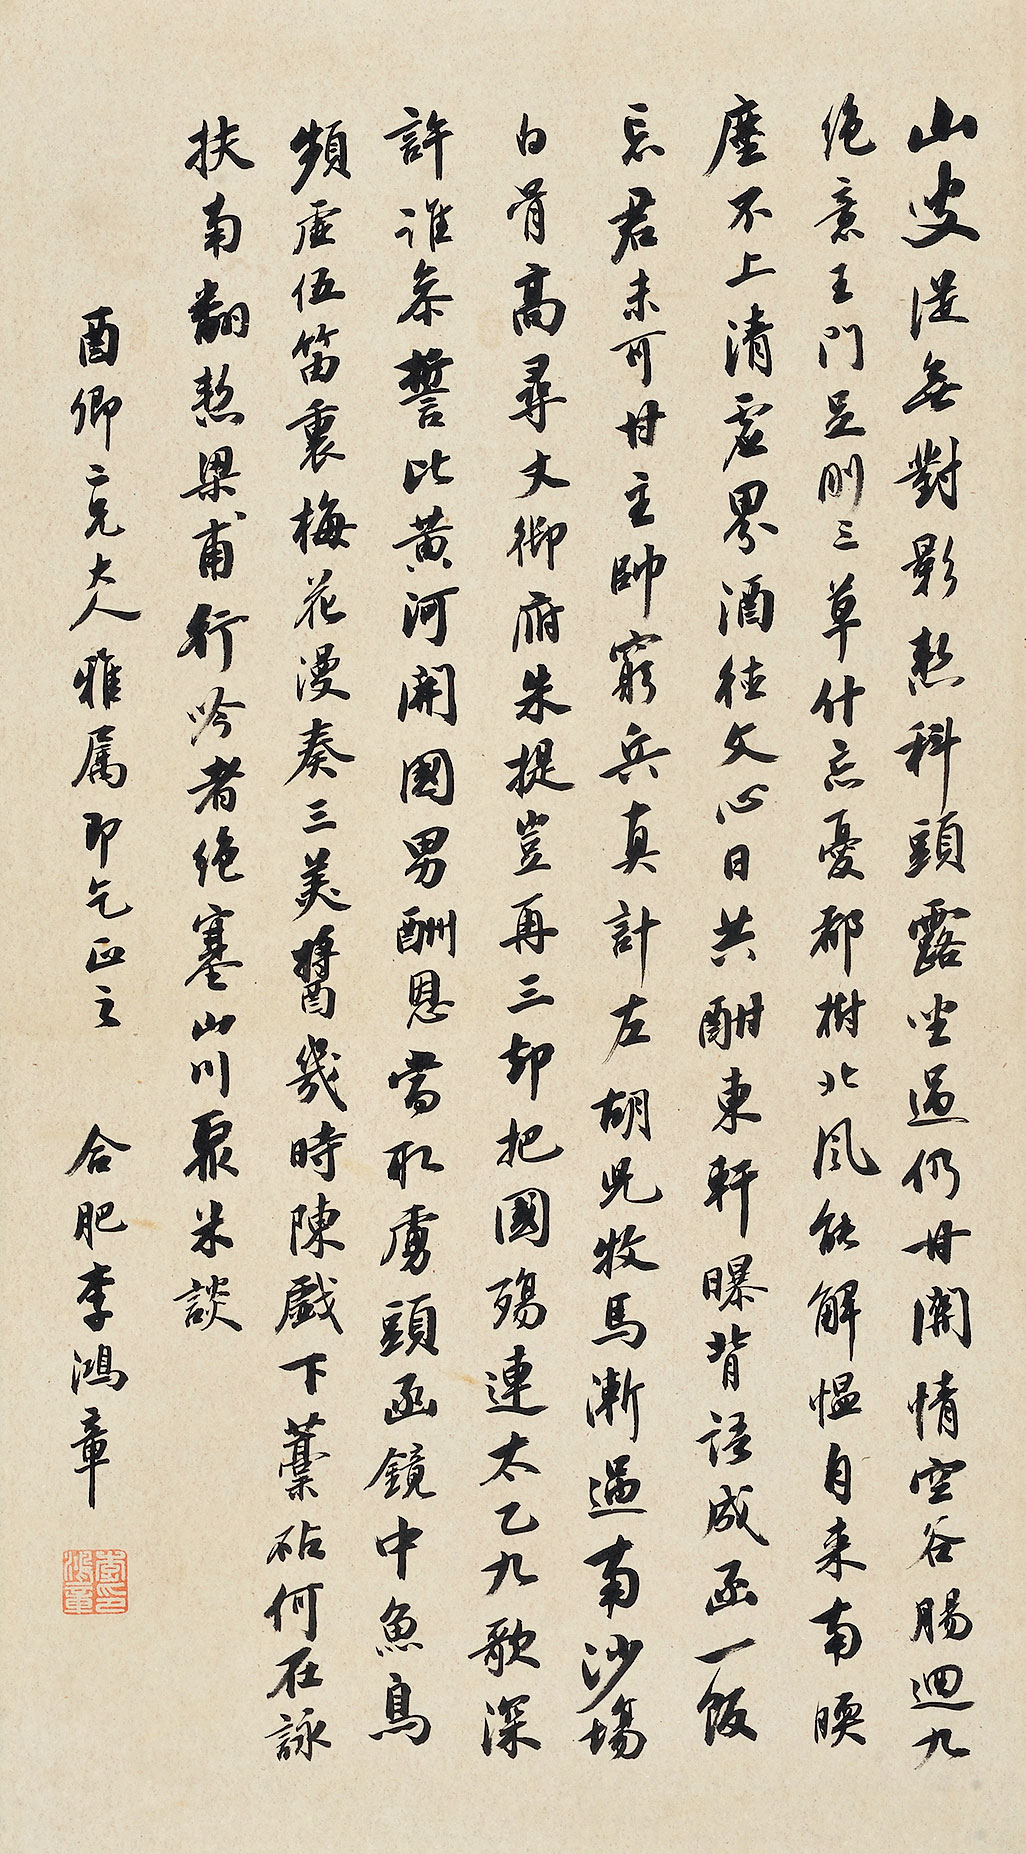 山叟從無對影慙科頭露坐過仍甘關情空谷腸迴九
絕意王門足刖三草什忘憂郡樹北風能解慍自来南暎
塵不上清虛界酒德文心日共酣東軒曝背語成函一飯
忘君未可甘主帥窮兵真計左胡兒牧馬漸過南沙場
白骨高尋丈御府朱提豈再三却把國殤連太乙九歌深
許誰參誓比黃河開國男酬恩當取虜頭函鏡中魚鳥
頻虛伍笛裏梅花漫奏三美醬幾時陳戲下藁砧何在詠
扶南翻慙梁甫行吟者絕塞山川聚米談
酉卿二兄大人雅属即乞正之 合肥李鴻章
李鴻章印